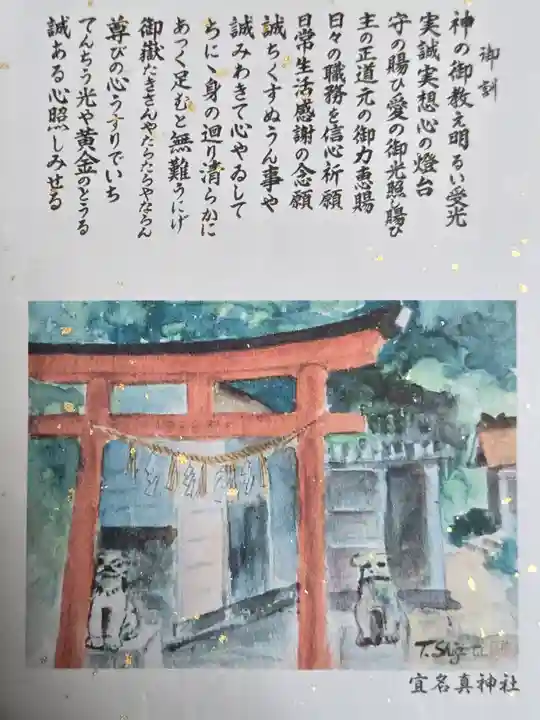 御訓
神の御教え明るい受光
実誠実想心の燈台
守の賜ひ愛の御光照し賜ひ
主の正道元の御力恵賜
日々の職務を信心祈願
日常生活感謝の念願
誠ちくすぬうん事や
誠みわきて心やゐして
ちに、身の廻り清らかに
あっく足むと無難うにげ
御嶽たきさんやたらたらやならん
尊びの心うすりでいち
てんちう光や黄金のとうる
誠ある心照しみせる
T.Shiz
宜名真神社